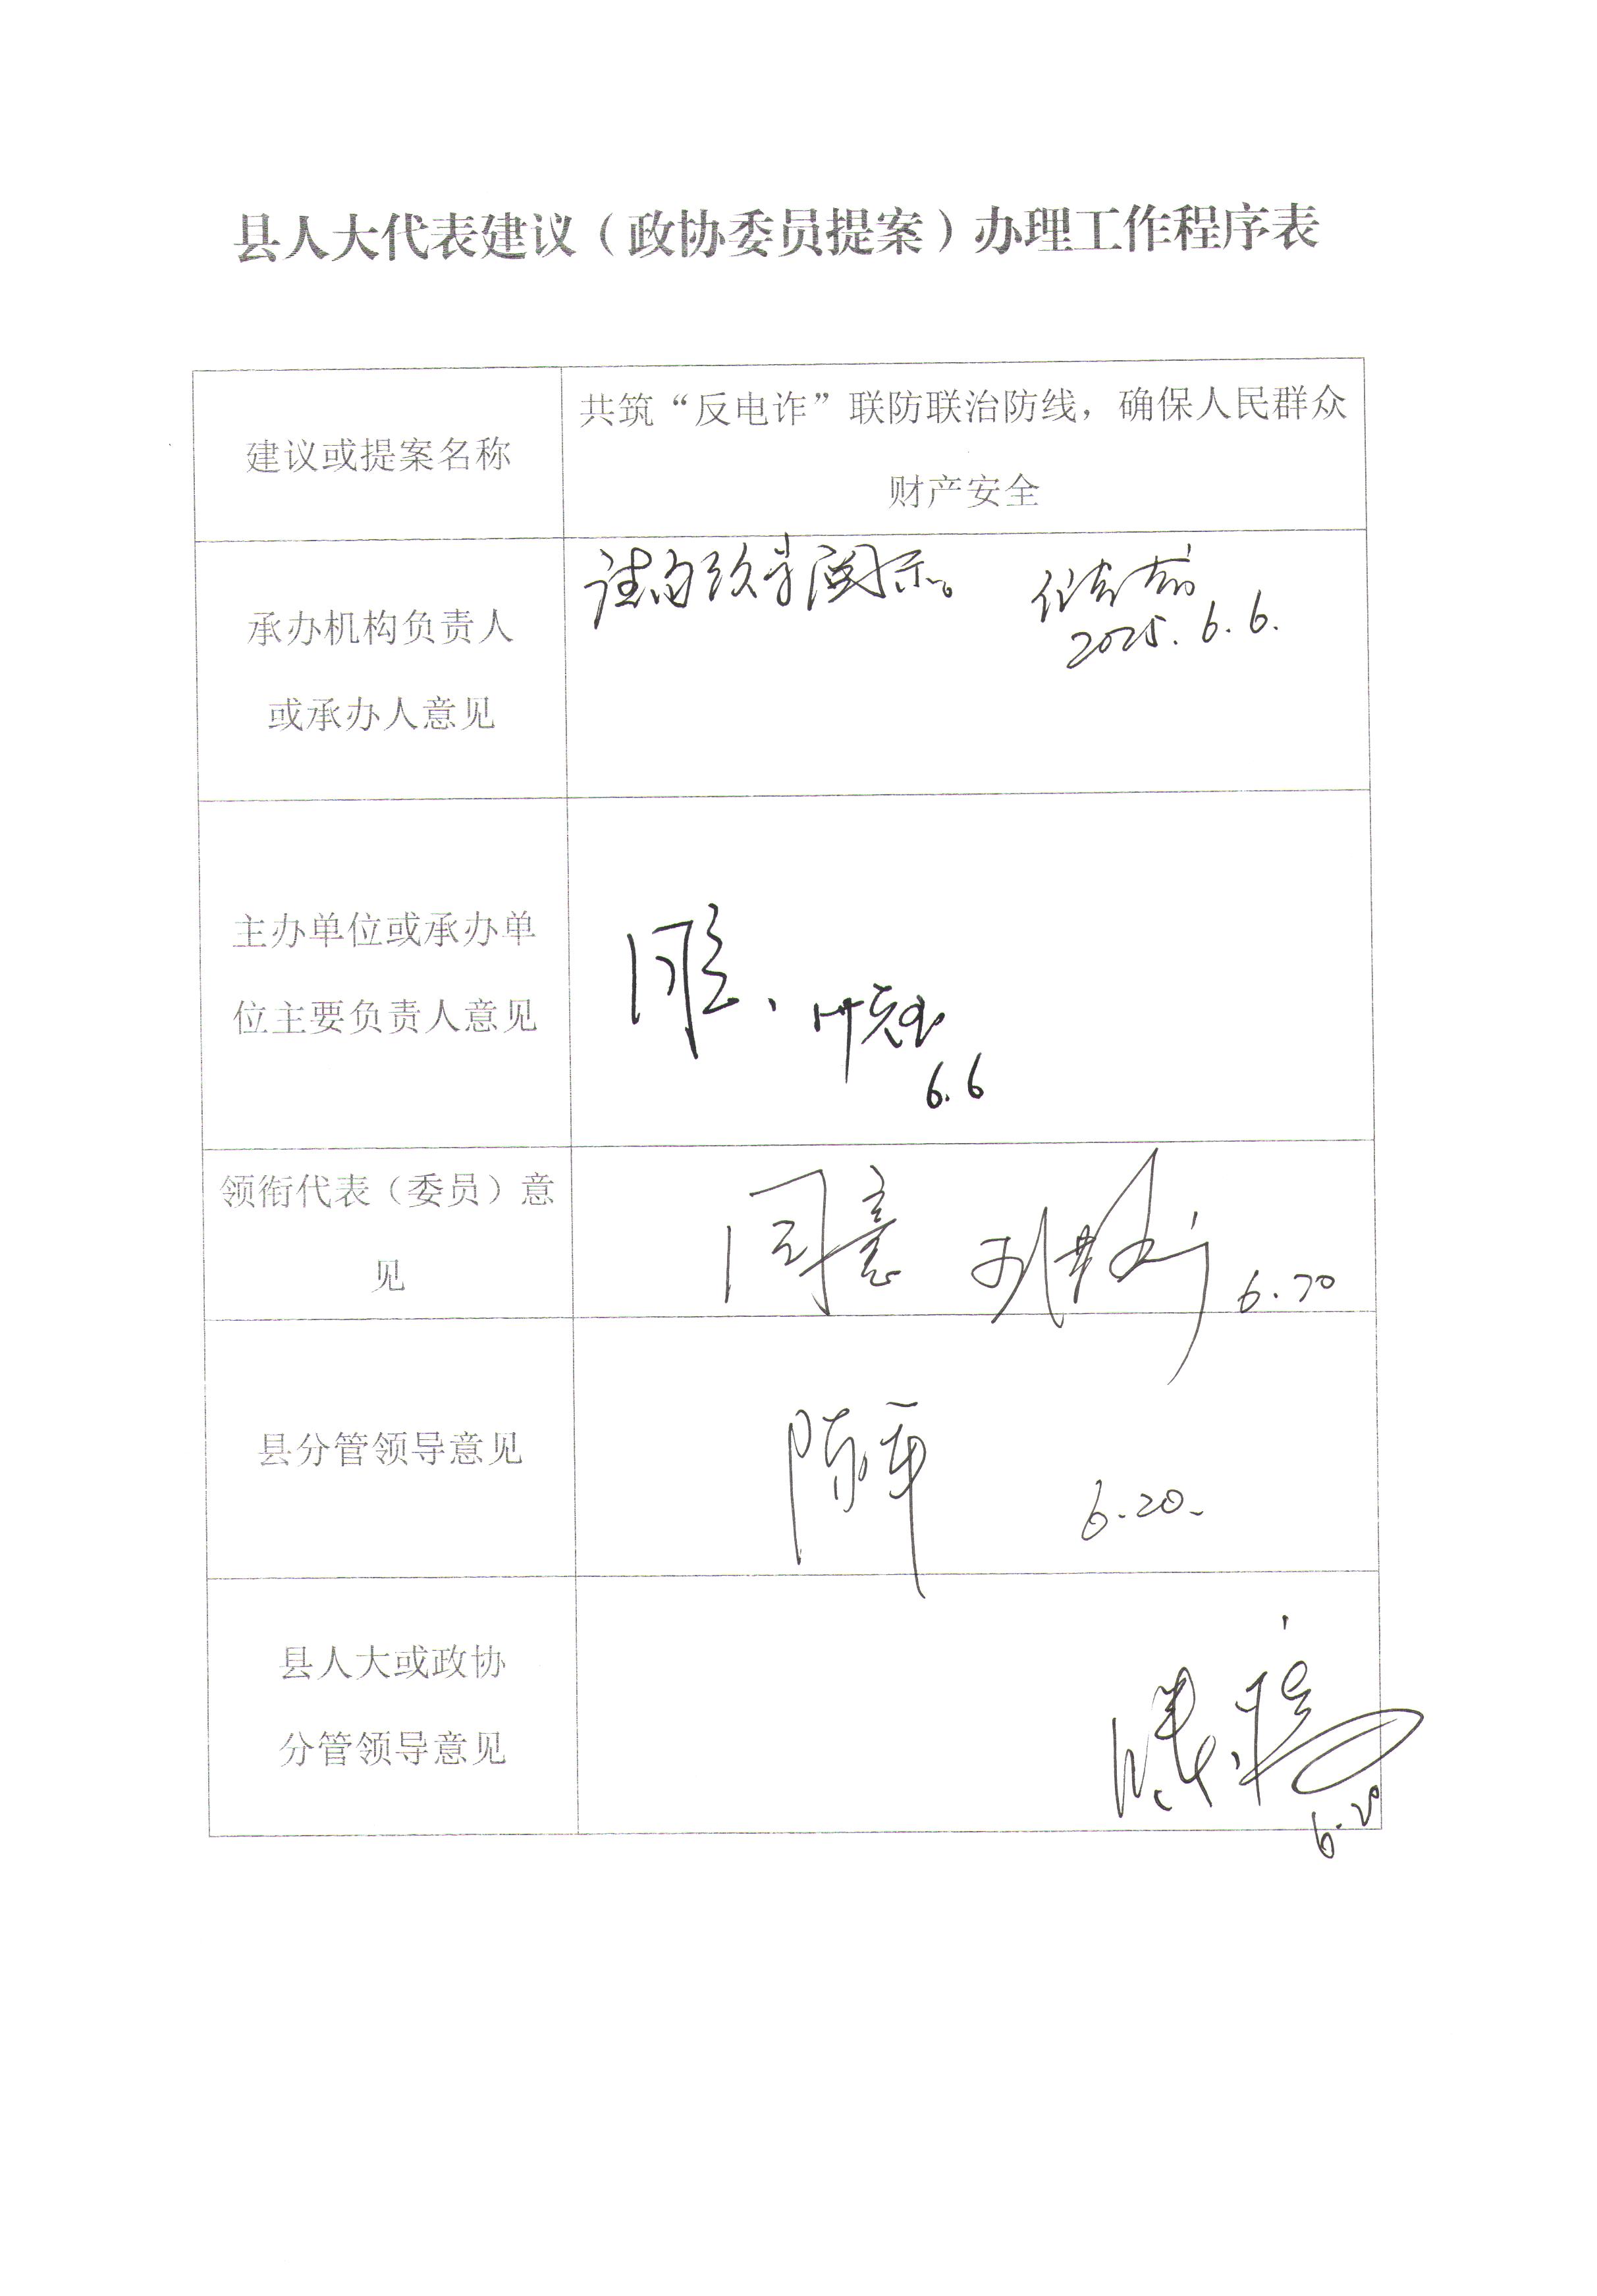 县人大代表建议（政协委员提案）办理工作程序表
建议或提案名称
共筑“反电诈”联防联治防线，确保人民群众
财产安全
承办机构负责人
或承办人意见
阅示。
2025.6.6.
主办单位或承办单
位主要负责人意见
同意、
6.6
领衔代表（委员）意
见
同意
6.20
县分管领导意见
陈军
6.20.
县人大或政协
分管领导意见
6.20